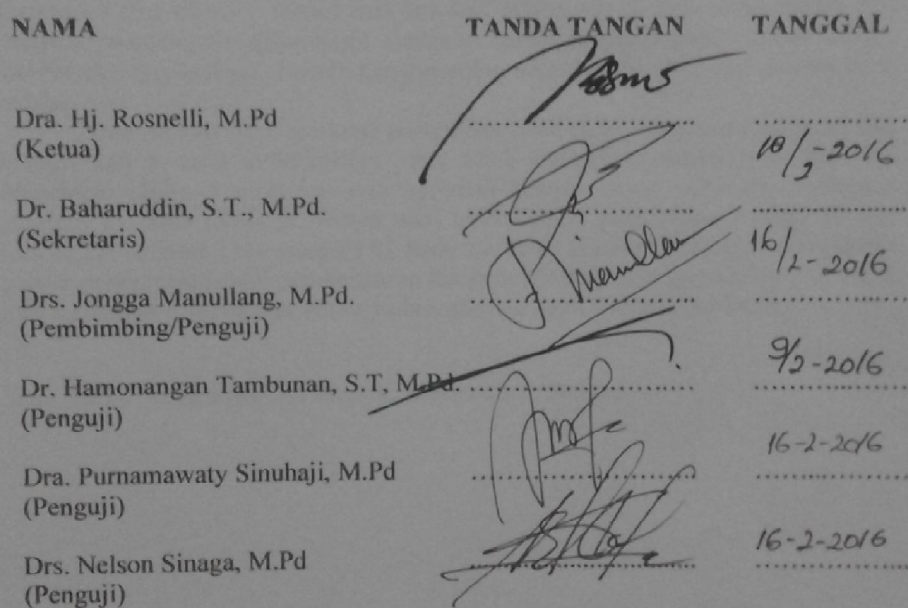 NAMA TANDA TANGAN TANGGAL
Dra. Hj. Rosnelli, M.Pd ........................ ................
(Ketua)
18/2-2016
Dr. Baharuddin, S.T., M.Pd. ........................ ................
(Sekretaris)
16/2-2016
Drs. Jongga Manullang, M.Pd. ........................ ................
(Pembimbing/Penguji)
9/2-2016
Dr. Hamonangan Tambunan, S.T, M.Pd. ........................ ................
(Penguji)
16-2-2016
Dra. Purnamawaty Sinuhaji, M.Pd ........................ ................
(Penguji)
16-2-2016
Drs. Nelson Sinaga, M.Pd ........................ ................
(Penguji)